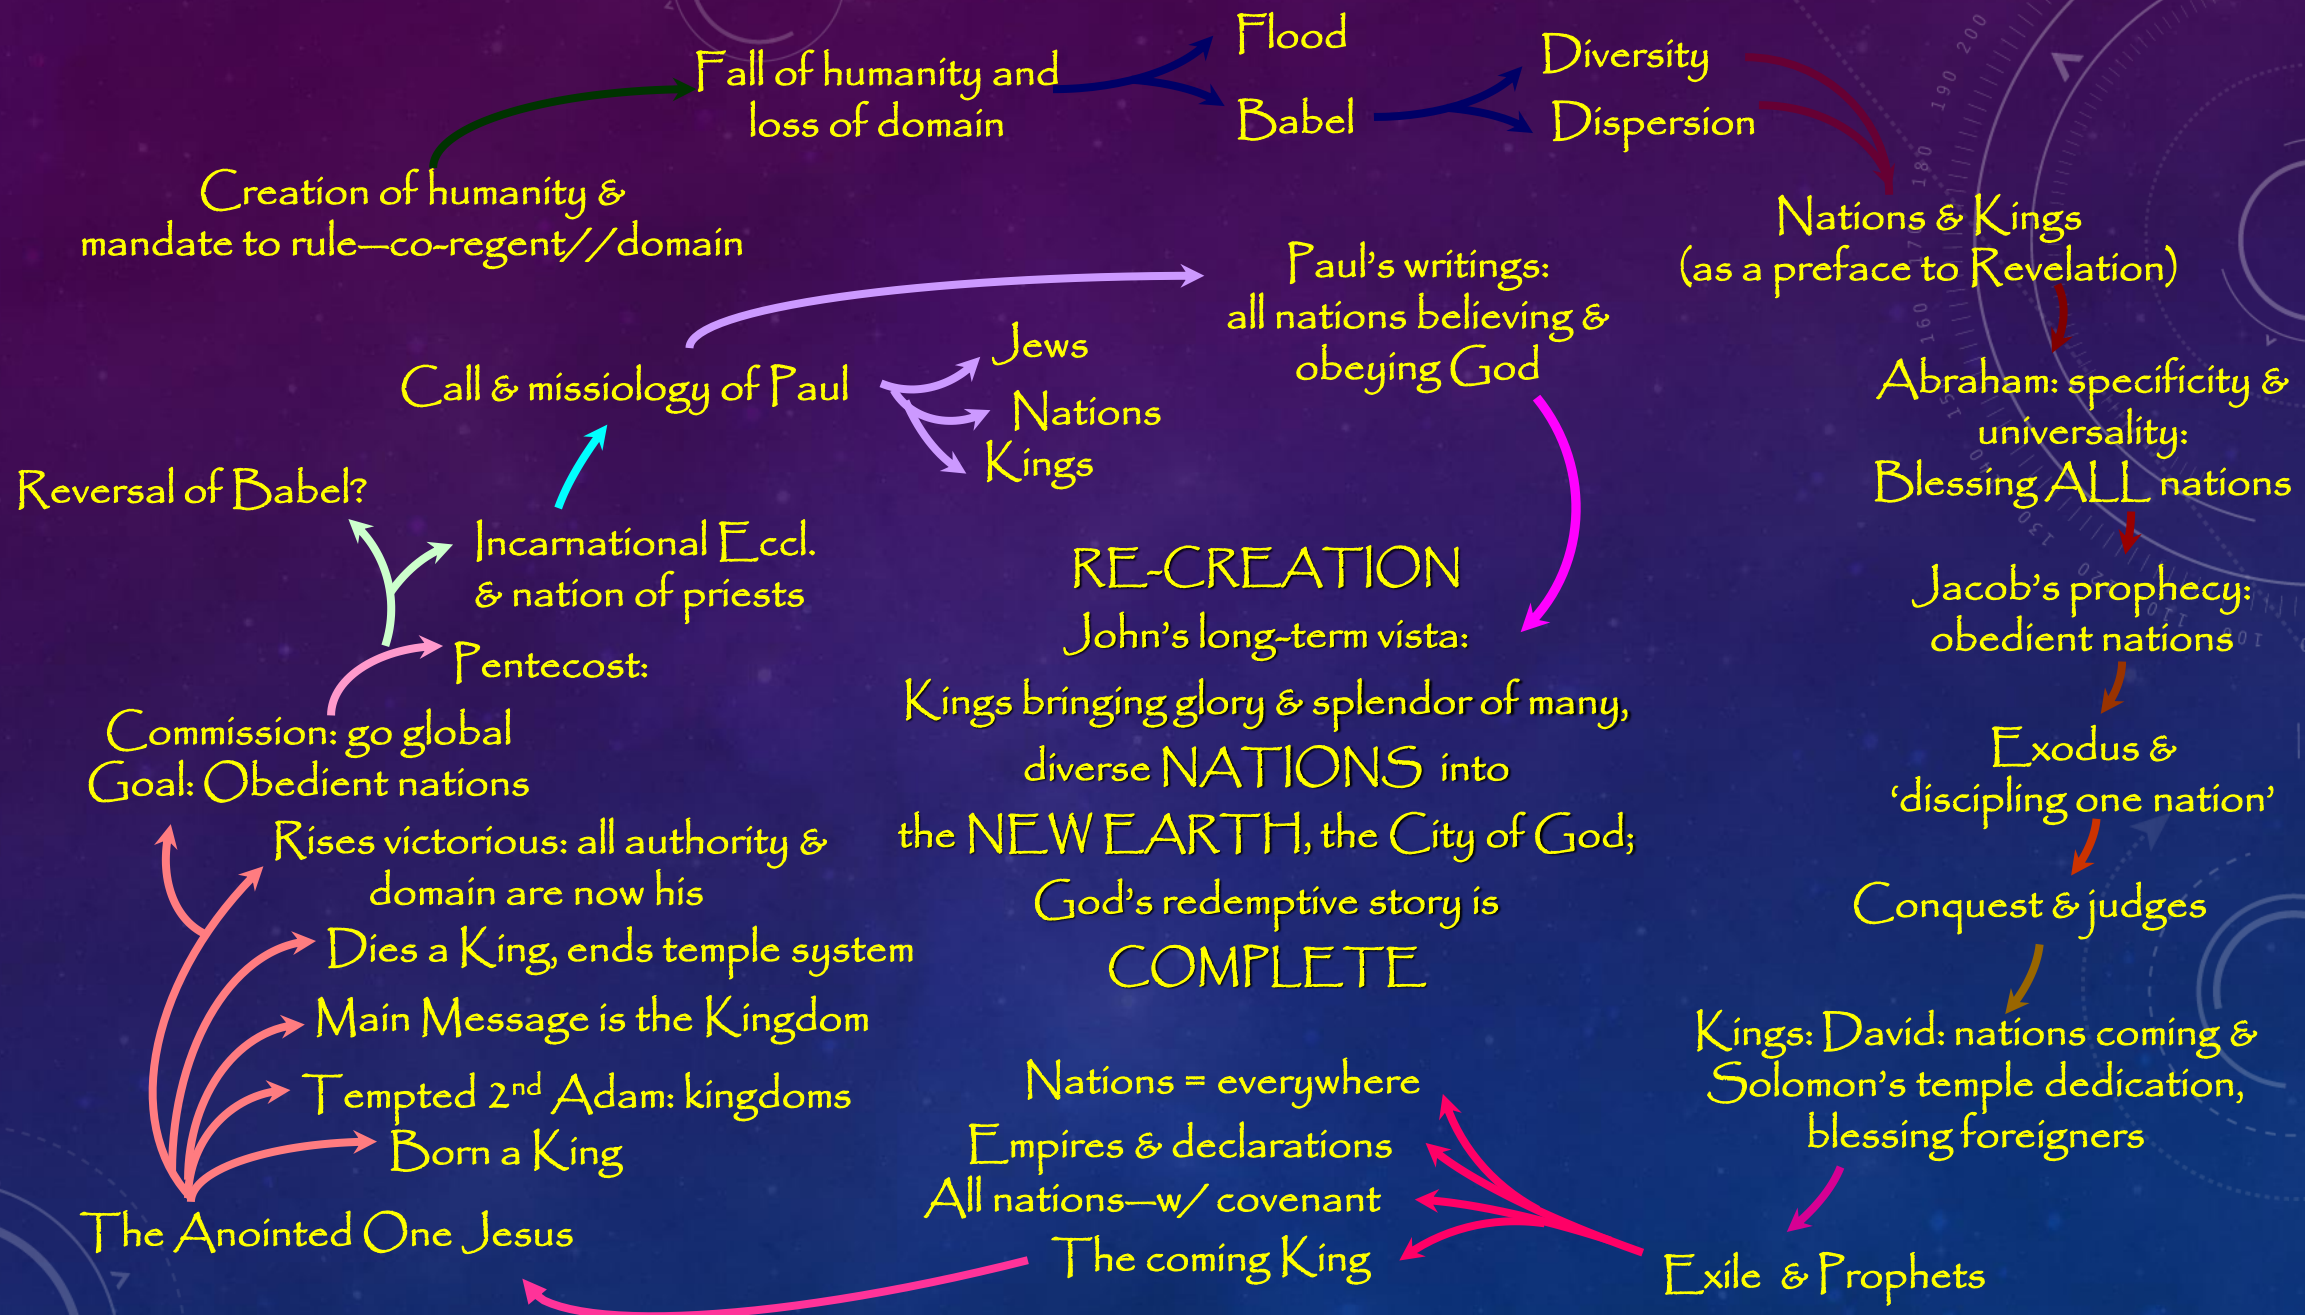 Creation of humanity &
mandate to rule—co-regent//domain
Fall of humanity and
loss of domain
Flood
Babel
Diversity
Dispersion
Nations & Kings
(as a preface to Revelation)
Abraham: specificity &
universality:
Blessing ALL nations
Jacob's prophecy:
obedient nations
Exodus &
‘discipling one nation’
Conquest & judges
Kings: David: nations coming &
Solomon's temple dedication,
blessing foreigners
Exile & Prophets
Nations = everywhere
Empires & declarations
All nations—w/ covenant
The coming King
The Anointed One Jesus
Born a King
Tempted 2nd Adam: kingdoms
Main Message is the Kingdom
Dies a King, ends temple system
Rises victorious: all authority &
domain are now his
Commission: go global
Goal: Obedient nations
Pentecost:
Reversal of Babel?
Incarnational Eccl.
& nation of priests
Call & missiology of Paul
Jews
Nations
Kings
Paul's writings:
all nations believing &
obeying God
RE-CREATION
John's long-term vista:
Kings bringing glory & splendor of many,
diverse NATIONS into
the NEW EARTH, the City of God;
God's redemptive story is
COMPLETE
200
190
180
170
160
150
130
120
110
100